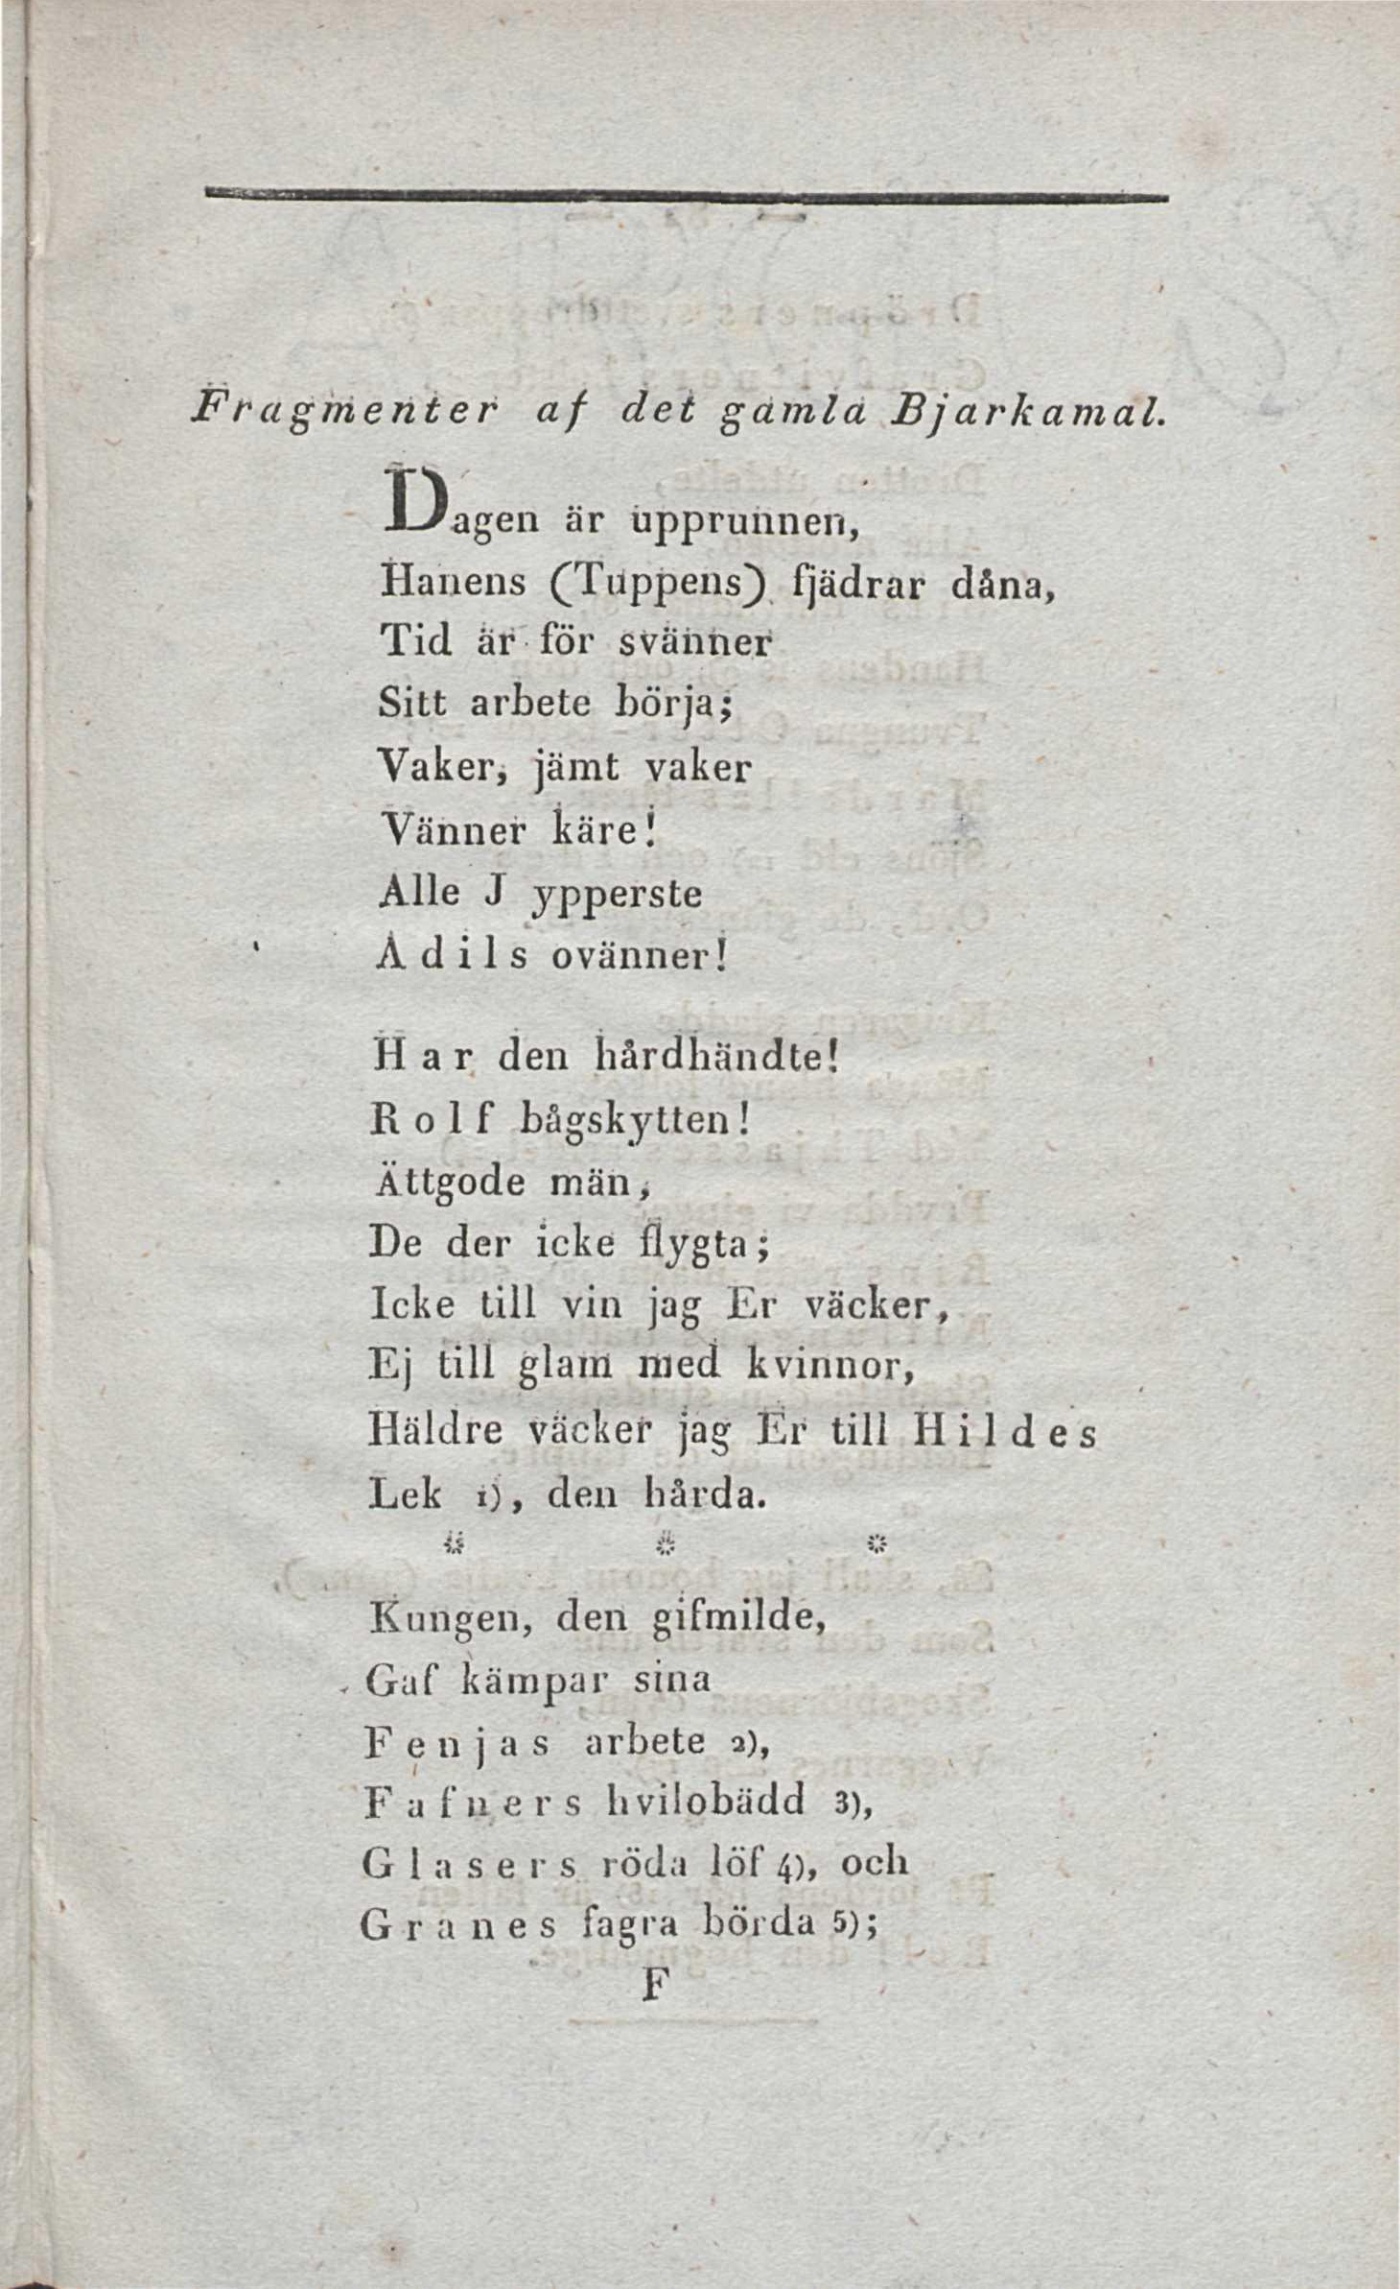 Fragmenter af det gamla Bjarkamal.
Dagen är upprunnen,
Hanens (Tuppens) fjädrar dåna,
Tid är för svänner
Sitt arbete börja;
Vaker, jämt vaker
Vänner käre!
Alle J ypperste
Adils ovänner!
Har den hårdhändte!
Rolf bågskytten!
Ättgode män,
De der icke flygta;
Icke till vin jag Er väcker,
Ej till glam med kvinnor,
Häldre väcker jag Er till Hildes
Lek 1), den hårda.
* * *
Kungen, den gifmilde,
Gaf kämpar sina
Fenjas arbete 2),
Fafners hvilobädd 3),
Glasers röda löf 4), och
Granes fagra börda 5);
F